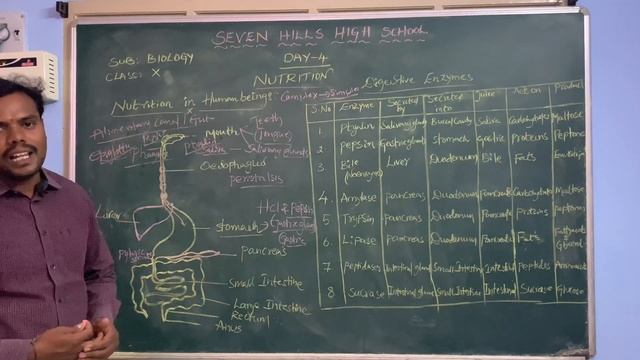 SEVEN HILLS HIGH SCHOOL
SUB: BIOLOGY
DAY-4
CLASS: X
NUTRITION
Nutrition in Humanbeings: Complex → Simple
Digestive Enzymes
Alimentary Canal / Gut
mouth
Teeth
Tongue
Salivary glands
Oesophagus
peristalsis
Liver
stomach
HCl & Pepsin
Gastric
pancreas
Small Intestine
Large Intestine
Rectum
Anus
S.No Enzyme Secreted by Secreted into Juice Action Product
1. Ptyalin Salivary glands Buccal Cavity Saliva Carbohydrates Maltose
2. Pepsin Gastric glands stomach Gastric Proteins Peptone
3. Bile Liver Duodenum Bile Fats
4. Amylase pancreas Duodenum Pancreatic Carbohydrates Maltose
5. Trypsin pancreas Duodenum Proteins Peptones
6. Lipase pancreas Duodenum Pancreatic Fats
7 Peptidases Intestinal glands Small Intestine Intestinal Peptides
8 Sucrase Intestinal glands Small Intestine Intestinal Sucrose Glucose